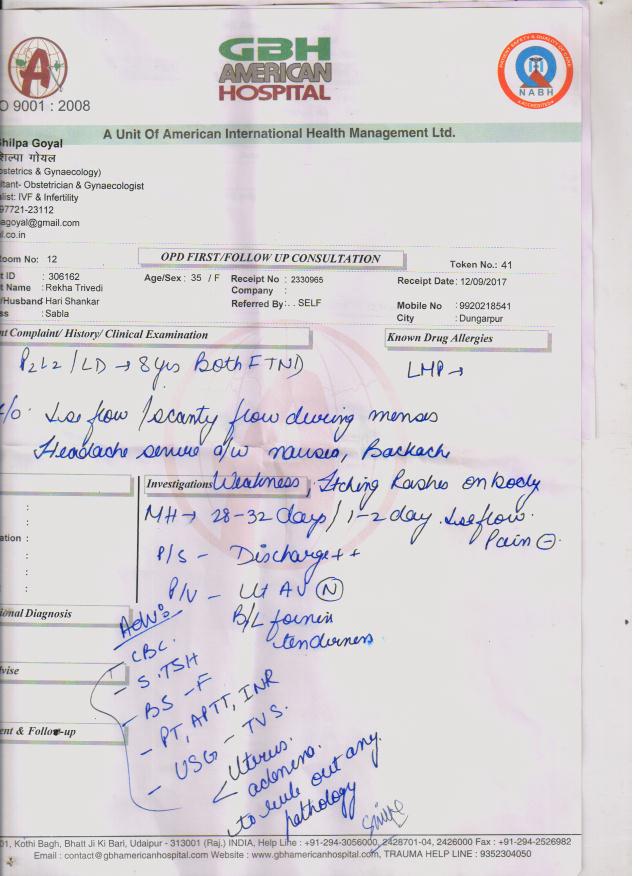 GBH
AMERICAN
HOSPITAL
A
O 9001 : 2008
PATIENT SAFETY & QUALITY OF CARE
NABH
ACCREDITED
A Unit Of American International Health Management Ltd.
Shilpa Goyal
शिल्पा गोयल
stetrics & Gynaecology)
ltant- Obstetrician & Gynaecologist
alist: IVF & Infertility
97721-23112
agoyal@gmail.com
al.co.in
Room No: 12
OPD FIRST/FOLLOW UP CONSULTATION
Token No.: 41
t ID : 306162 Age/Sex : 35 / F Receipt No : 2330965 Receipt Date: 12/09/2017
t Name : Rekha Trivedi Company :
/Husband Hari Shankar Referred By: . . SELF Mobile No : 9920218541
ss : Sabla City : Dungarpur
nt Complaint/ History/ Clinical Examination Known Drug Allergies
P2L2 / LD → 8yrs Both FTND LMP →
flow / scanty flow during menses
Headache severe a/w nausea, Backache
Investigations Weakness, Itching Rashes on body
MH → 28-32 days / 1-2 day flow.
Pain ⊖
P/S - Discharge ++
P/V - Ut AV (N)
B/L fornix
tenderness
ation :
ional Diagnosis
dvise
ent & Follow-up
Adv:
- CBC.
- S.TSH
- BS - F
- PT, APTT, INR
- USG - TVS.
Uterus.
adenexa.
to rule out any
pathology
01, Kothi Bagh, Bhatt Ji Ki Bari, Udaipur - 313001 (Raj.) INDIA, Help Line : +91-294-3056000, 2428701-04, 2426000 Fax : +91-294-2526982
Email : contact@gbhamericanhospital.com Website : www.gbhamericanhospital.com, TRAUMA HELP LINE : 9352304050